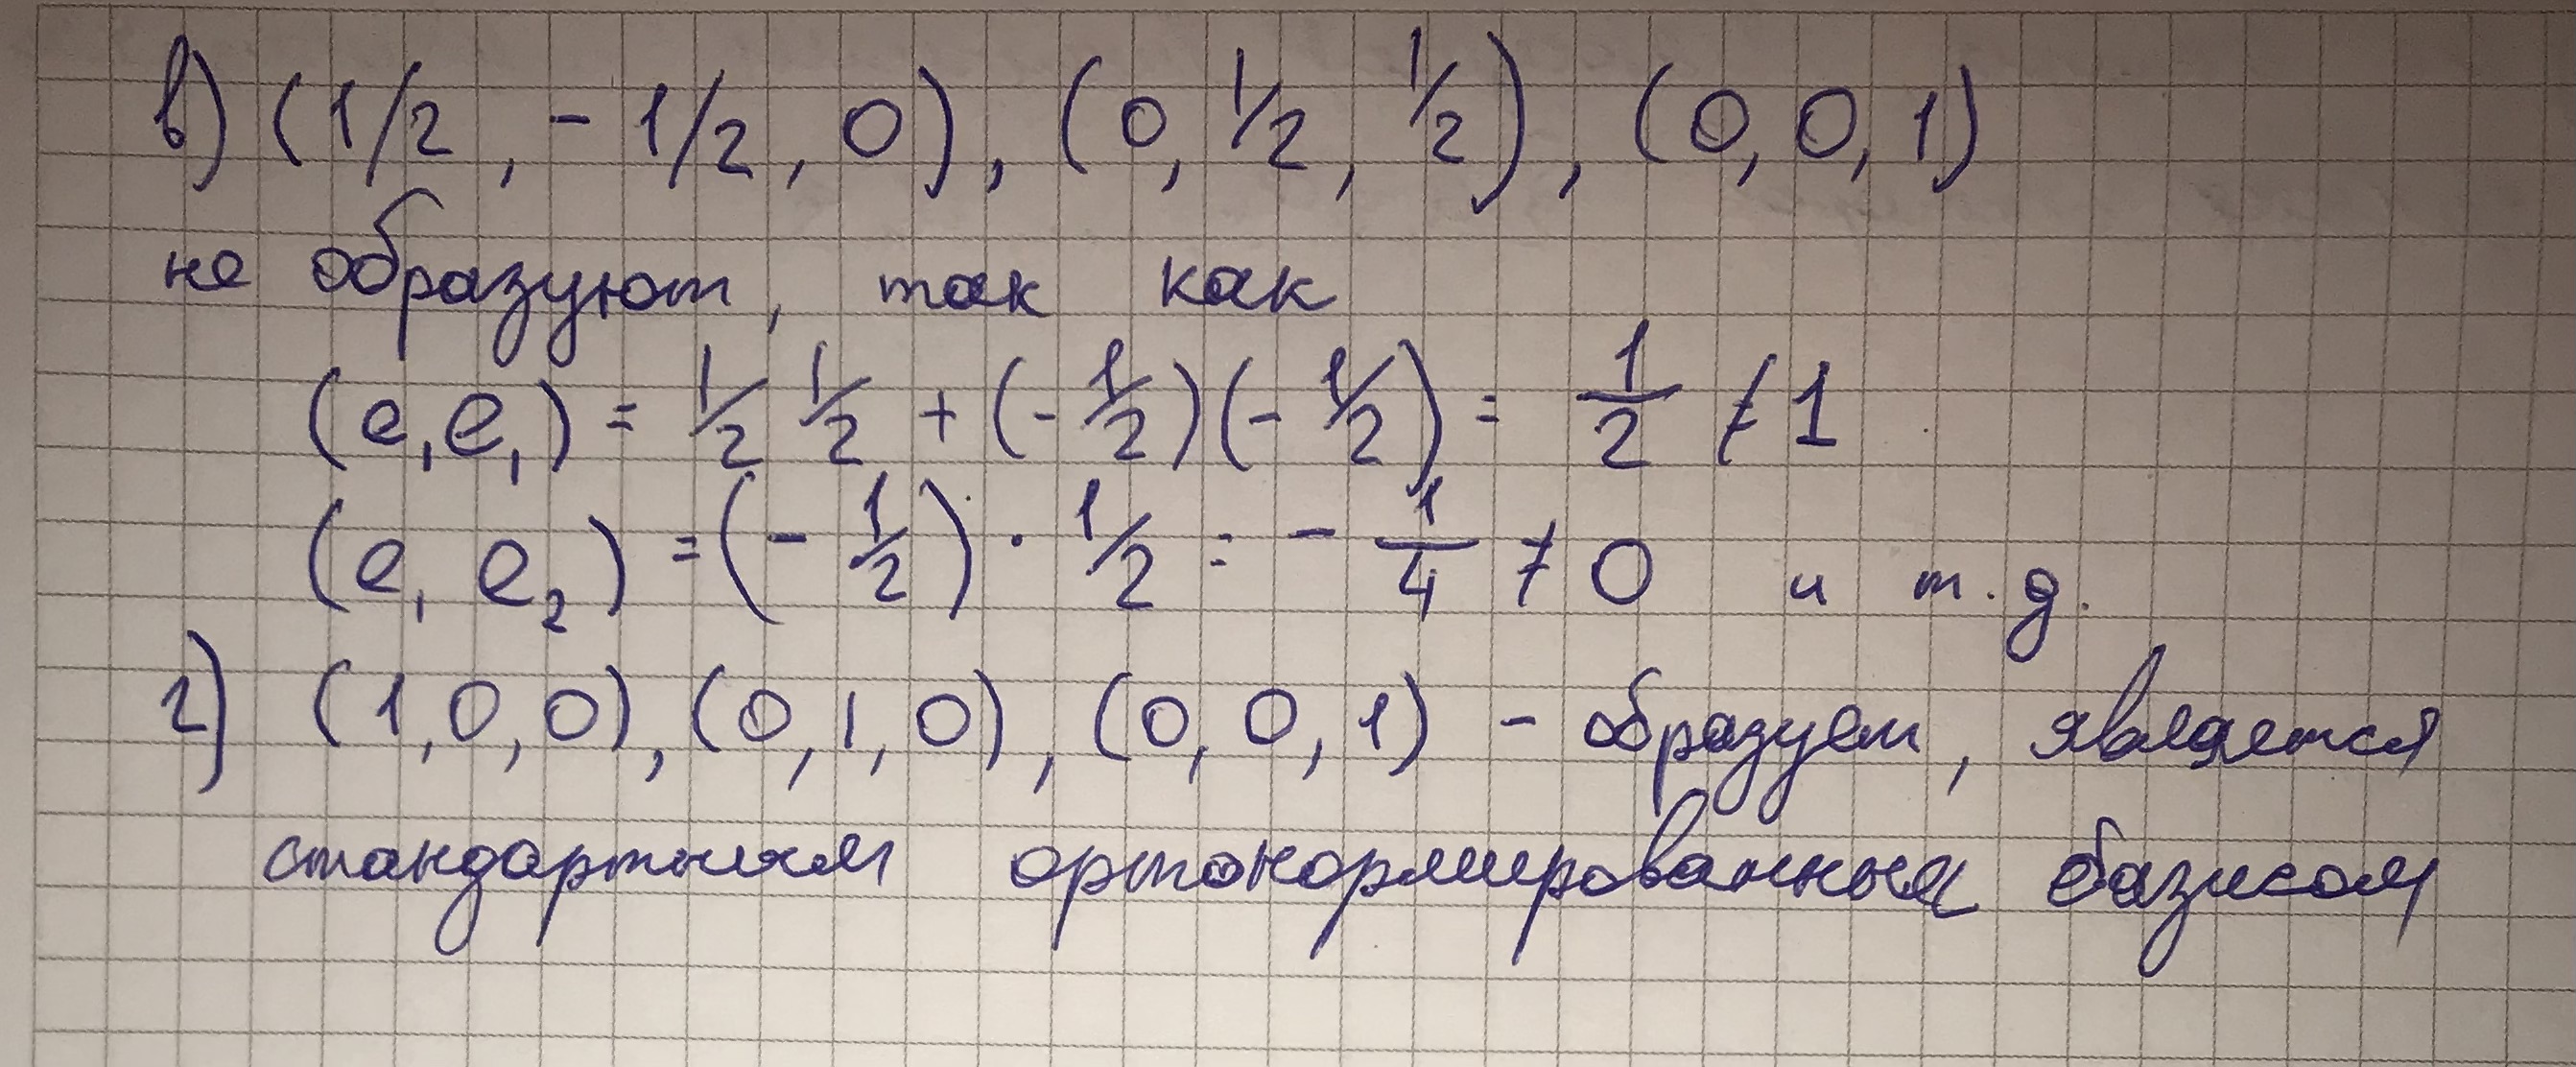 в) (1/2, - 1/2, 0), (0, 1/2, 1/2), (0, 0, 1)
не образуют, так как
(e₁e₁) = 1/2 1/2 + (- 1/2)(- 1/2) = 1/2 ≠ 1
(e₁ e₂) = (- 1/2) · 1/2 = - 1/4 ≠ 0 и т.д.
г) (1,0,0), (0,1,0), (0,0,1) - образует, является
стандартным ортонормированным базисом